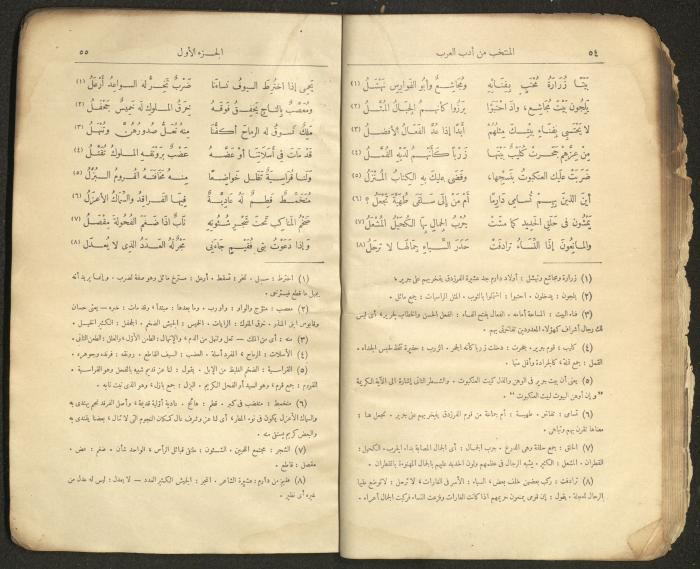 ٥٤
المنتخب من أدب العرب
بَيْتًا زُرَارَةُ مُحْتَبٍ بِفِنَائِهِ وَمُجَاشِعٌ وأبُو الفَوَارِسِ نَهْشَلُ (١)
يَلِجُونَ بَيْتَ مُجَاشِعٍ، وإذَا احْتَبَوْا بَرَزُوا كأنَّهُمُ الجِبَالُ المُثَّلُ (٢)
لا يَحْتَبِي بِفِنَاءِ بَيْتِكَ مِثْلُهُمْ أبَدًا إذَا عُدَّ الفَعَالُ الأفْضَلُ (٣)
مِنْ عِزِّهِمْ جَحَرَتْ كُلَيْبٌ بَيْتَهَا زَرْبًا كأنَّهُمُ لَدَيْهِ القُمَّلُ (٤)
ضَرَبَتْ عَلَيْكَ العَنْكَبُوتُ بِنَسْجِهَا، وقَضَى عَلَيْكَ بِهِ الكِتَابُ المُنْزَلُ (٥)
أيْنَ الَّذِينَ بِهِمْ تُسَامِى دَارِمًا أمْ مَنْ إلَى سَلَفَى طُهَيَّةَ تَجْعَلُ ؟ (٦)
يَمْشُونَ فِى حَلَقِ الحَدِيدِ كما مَشَتْ جُرْبُ الجِمَالِ بِهَا الكُحَيْلُ المُشْعَلُ (٧)
والمَانِعُونَ إذَا النِّسَاءُ تَرَادَفَتْ حَذَرَ السِّبَاءِ جِمَالُهَا لا تُرْحَلُ (٨)
(١) زرارة ومجاشع ونهشل : أولاد دارم جد عشيرة الفرزدق يفتخر بهم على جرير .
(٢) يلجون : يدخلون . احتبوا : اشتملوا بالثوب . المثل الراسيات : جمع ماثل .
(٣) فناء البيت : الساحة أمامه . الفعال بفتح الفاء : الفعل الحسن والخطاب لجرير، أى ليس
لك رجال أشراف كهؤلاء المعدودين تفاخرنى بهم .
(٤) كليب : قوم جرير . جحرت : دخلت زربا كأنه الجحر . الزرب : حظيرة تتخذ لحبس الجداء .
القمل : جمع قملة، كالجرادة وأقل منها .
(٥) يعنى أن بيت جرير فى الوهن والذل كبيت العنكبوت . والشطر الثانى إشارة إلى الآية الكريمة
" وإن أوهن البيوت لبيت العنكبوت " .
(٦) تسامى : تفاخر . طهية : أم جماعة من قوم الفرزدق يفتخر بهم على جرير . تجعل هنا :
معناها تقرن بهم وتباهى .
(٧) الحلق : جمع حلقة وهى الدرع . جرب الجمال : أى الجمال المصابة بداء الجرب . الكحيل :
القطران . المشعل : الكثير . يشبه الرجال فى عظمهم ولون الحديد عليهم بالجمال المهنوءة بالقطران .
(٨) ترادفت : ركب بعضهن خلف بعض . السباء : الأسر فى الغارات، لا ترحل : لا توضع عليها
الرحال للعجلة . يقول : إن قومى يمنعون حريمهم اذا كانت الغارات وفزعت النساء فركبت الجمال أعراء .
الجزء الأول
٥٥
يَحْمِى إذا اخْتُرِطَ السُّيُوفُ نِسَاءَنَا ضَرْبٌ تَخِرُّ لَهُ السَّوَاعِدُ أرْعَلُ (١)
ومُعَصَّبٌ بِالتَّاجِ يَخْفِقُ فَوْقَهُ خِرَقُ المُلُوكِ لَهُ خَمِيسٌ جَحْفَلُ (٢)
مَلِكٌ تَسُوقُ لَهُ الرِّمَاحَ أكُفُّنَا مِنْهُ نَعُلُّ صُدُورَهُنَّ ونُنْهِلُ (٣)
قَدْ مَاتَ فِى أسَلَاتِنَا أوْ عَضَّهُ عَضْبٌ بِرَوْنَقِهِ المُلُوكُ تُقَتَّلُ (٤)
وَلَنَا قُرَاسِيَةٌ تَظَلُّ خَوَاضِعًا مِنْهُ مَخَافَتَهُ القُرُومُ البُزَّلُ (٥)
مُتَخَمِّطٌ قَطِمٌ لَهُ عَادِيَّةٌ فِيهَا الفَرَاقِدُ والسِّمَاكُ الأعْزَلُ (٦)
ضَخْمُ المَنَاكِبِ تَحْتَ شَجْرِ شُئُونِهِ نَابٌ إذَا ضَغَمَ الفُحُولَةَ مِقْصَلُ (٧)
وإذَا دَعَوْتُ بَنِى فُقَيْمٍ جَاءَنِى مَجْرٌ لَهُ العَدَدُ الذى لا يُعْدَلُ (٨)
(١) اخترط : سل . تخر : تسقط . أرعل : مسترخ مائل وهو صفة لضرب . وإنما يريد أنه
يميل ما قطع فيسترخى .
(٢) معصب : متوج والواو : واو رب . وما بعدها : مبتدأ، وقد مات : خبره — يعنى حسان
وقابوس ابنى المنذر . خرق الملوك : الرايات . الخميس : الجيش الضخم . الجحفل : الكثير الخيل .
(٣) منه : أى من الملك — نعل وننهل من الدم، والإنهال : الطعن الأول، والعلل : الطعن الثانى .
(٤) الأسلات : الرماح، المفرد أسلة . العضب : السيف القاطع . رونقه : فرنده وجوهره .
(٥) القراسية : الضخم الغليظ من الإبل . يقول : لنا عز قديم شبيه بالفحل وهو القراسية .
القروم : جمع قرم، وهو السيد أو الفحل الكريم . البزل : جمع بازل، وهو الذى نبت نابه .
(٦) متخمط : متغضب فى كبر . قطم : هائج . عادية : أولية قديمة، وأصل الفرقد نجم يهتدى به
والسماك الأعزل يكون فى نوء المطر، أى لنا عز وشرف عال كمكان النجوم التى لا تنال، بعضنا يقتدى به
والبعض كريم يستقى منه .
(٧) الشجر : مجتمع اللحيين . الشئون : ملتقى قبائل الرأس، الواحد شأن . ضغم : عض .
مقصل : قاطع .
(٨) فقيم من دارم : عشيرة الشاعر . المجر : الجيش الكثير العدد — لا يعدل : ليس له عدل من
غيره أى نظير .